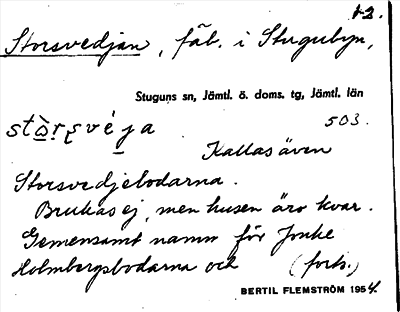 1-2.
Storsvedjan, fäb. i Stugubyn,
Stuguns sn, Jämtl. ö. doms. tg, Jämtl. län
503.
Kallas även
Storsvedjebodarna.
Brukas ej, men husen äro kvar.
Gemensamt namn för Jonke
Holmbergsbodarna och (forts.)
BERTIL FLEMSTRÖM 1954.